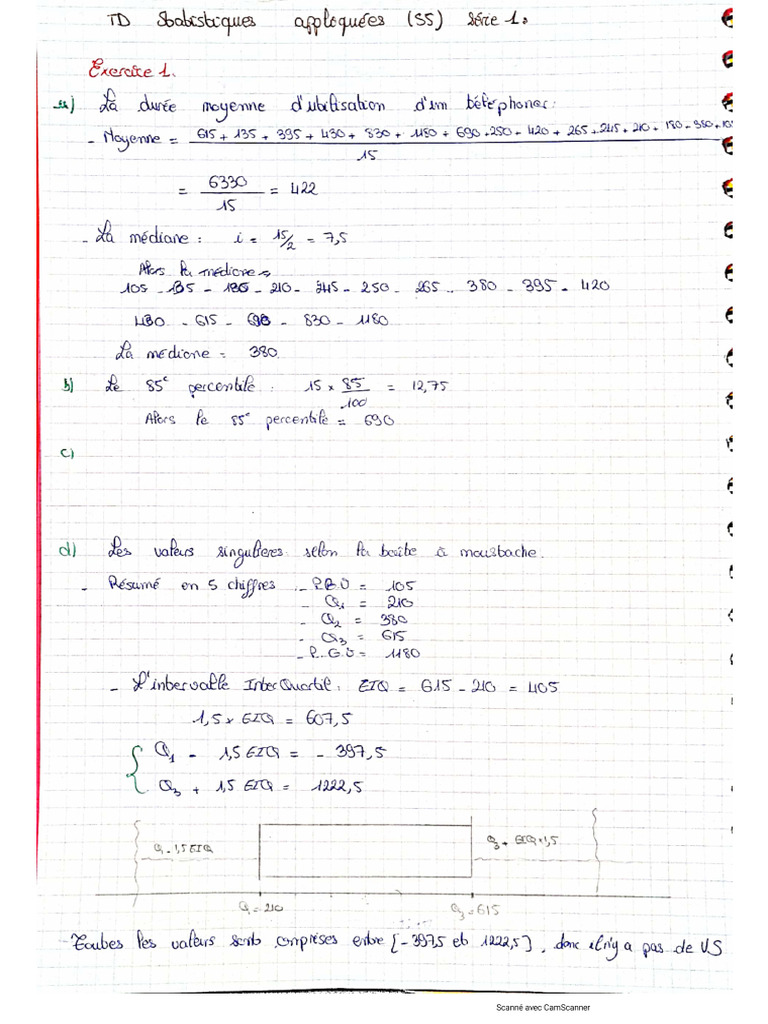 TD Statistiques appliquées (S5) Série 1.
Exercice 1.
a) La durée moyenne d'utilisation d'un téléphone:
- Moyenne = 615 + 135 + 395 + 430 + 830 + 1180 + 690 + 250 + 420 + 265 + 245 + 210 + 180 + 380 + 105
15
= 6330 / 15 = 422
- La médiane : i = 15/2 = 7,5
Alors la médiane
105 - 135 - 180 - 210 - 245 - 250 - 265 - 380 - 395 - 420
430 - 615 - 690 - 830 - 1180
La médiane = 380
b) Le 85e percentile : 15 x 85/100 = 12,75
Alors le 85e percentile = 690
c)
d) Les valeurs singulieres selon la boîte à moustache.
- Résumé en 5 chiffres - P.P.V = 105
- Q1 = 210
- Q2 = 380
- Q3 = 615
- P.G.V = 1180
- L'intervalle InterQuartil: EIQ = 615 - 210 = 405
1,5 x EIQ = 607,5
{ Q1 - 1,5 EIQ = - 397,5
Q3 + 1,5 EIQ = 1222,5
Q - 1,5 EIQ Q3 + EIQ x 1,5
Q1 = 210 Q3 = 615
Toutes les valeurs sont comprises entre [-397,5 et 1222,5], donc il n'y a pas de VS
Scanné avec CamScanner